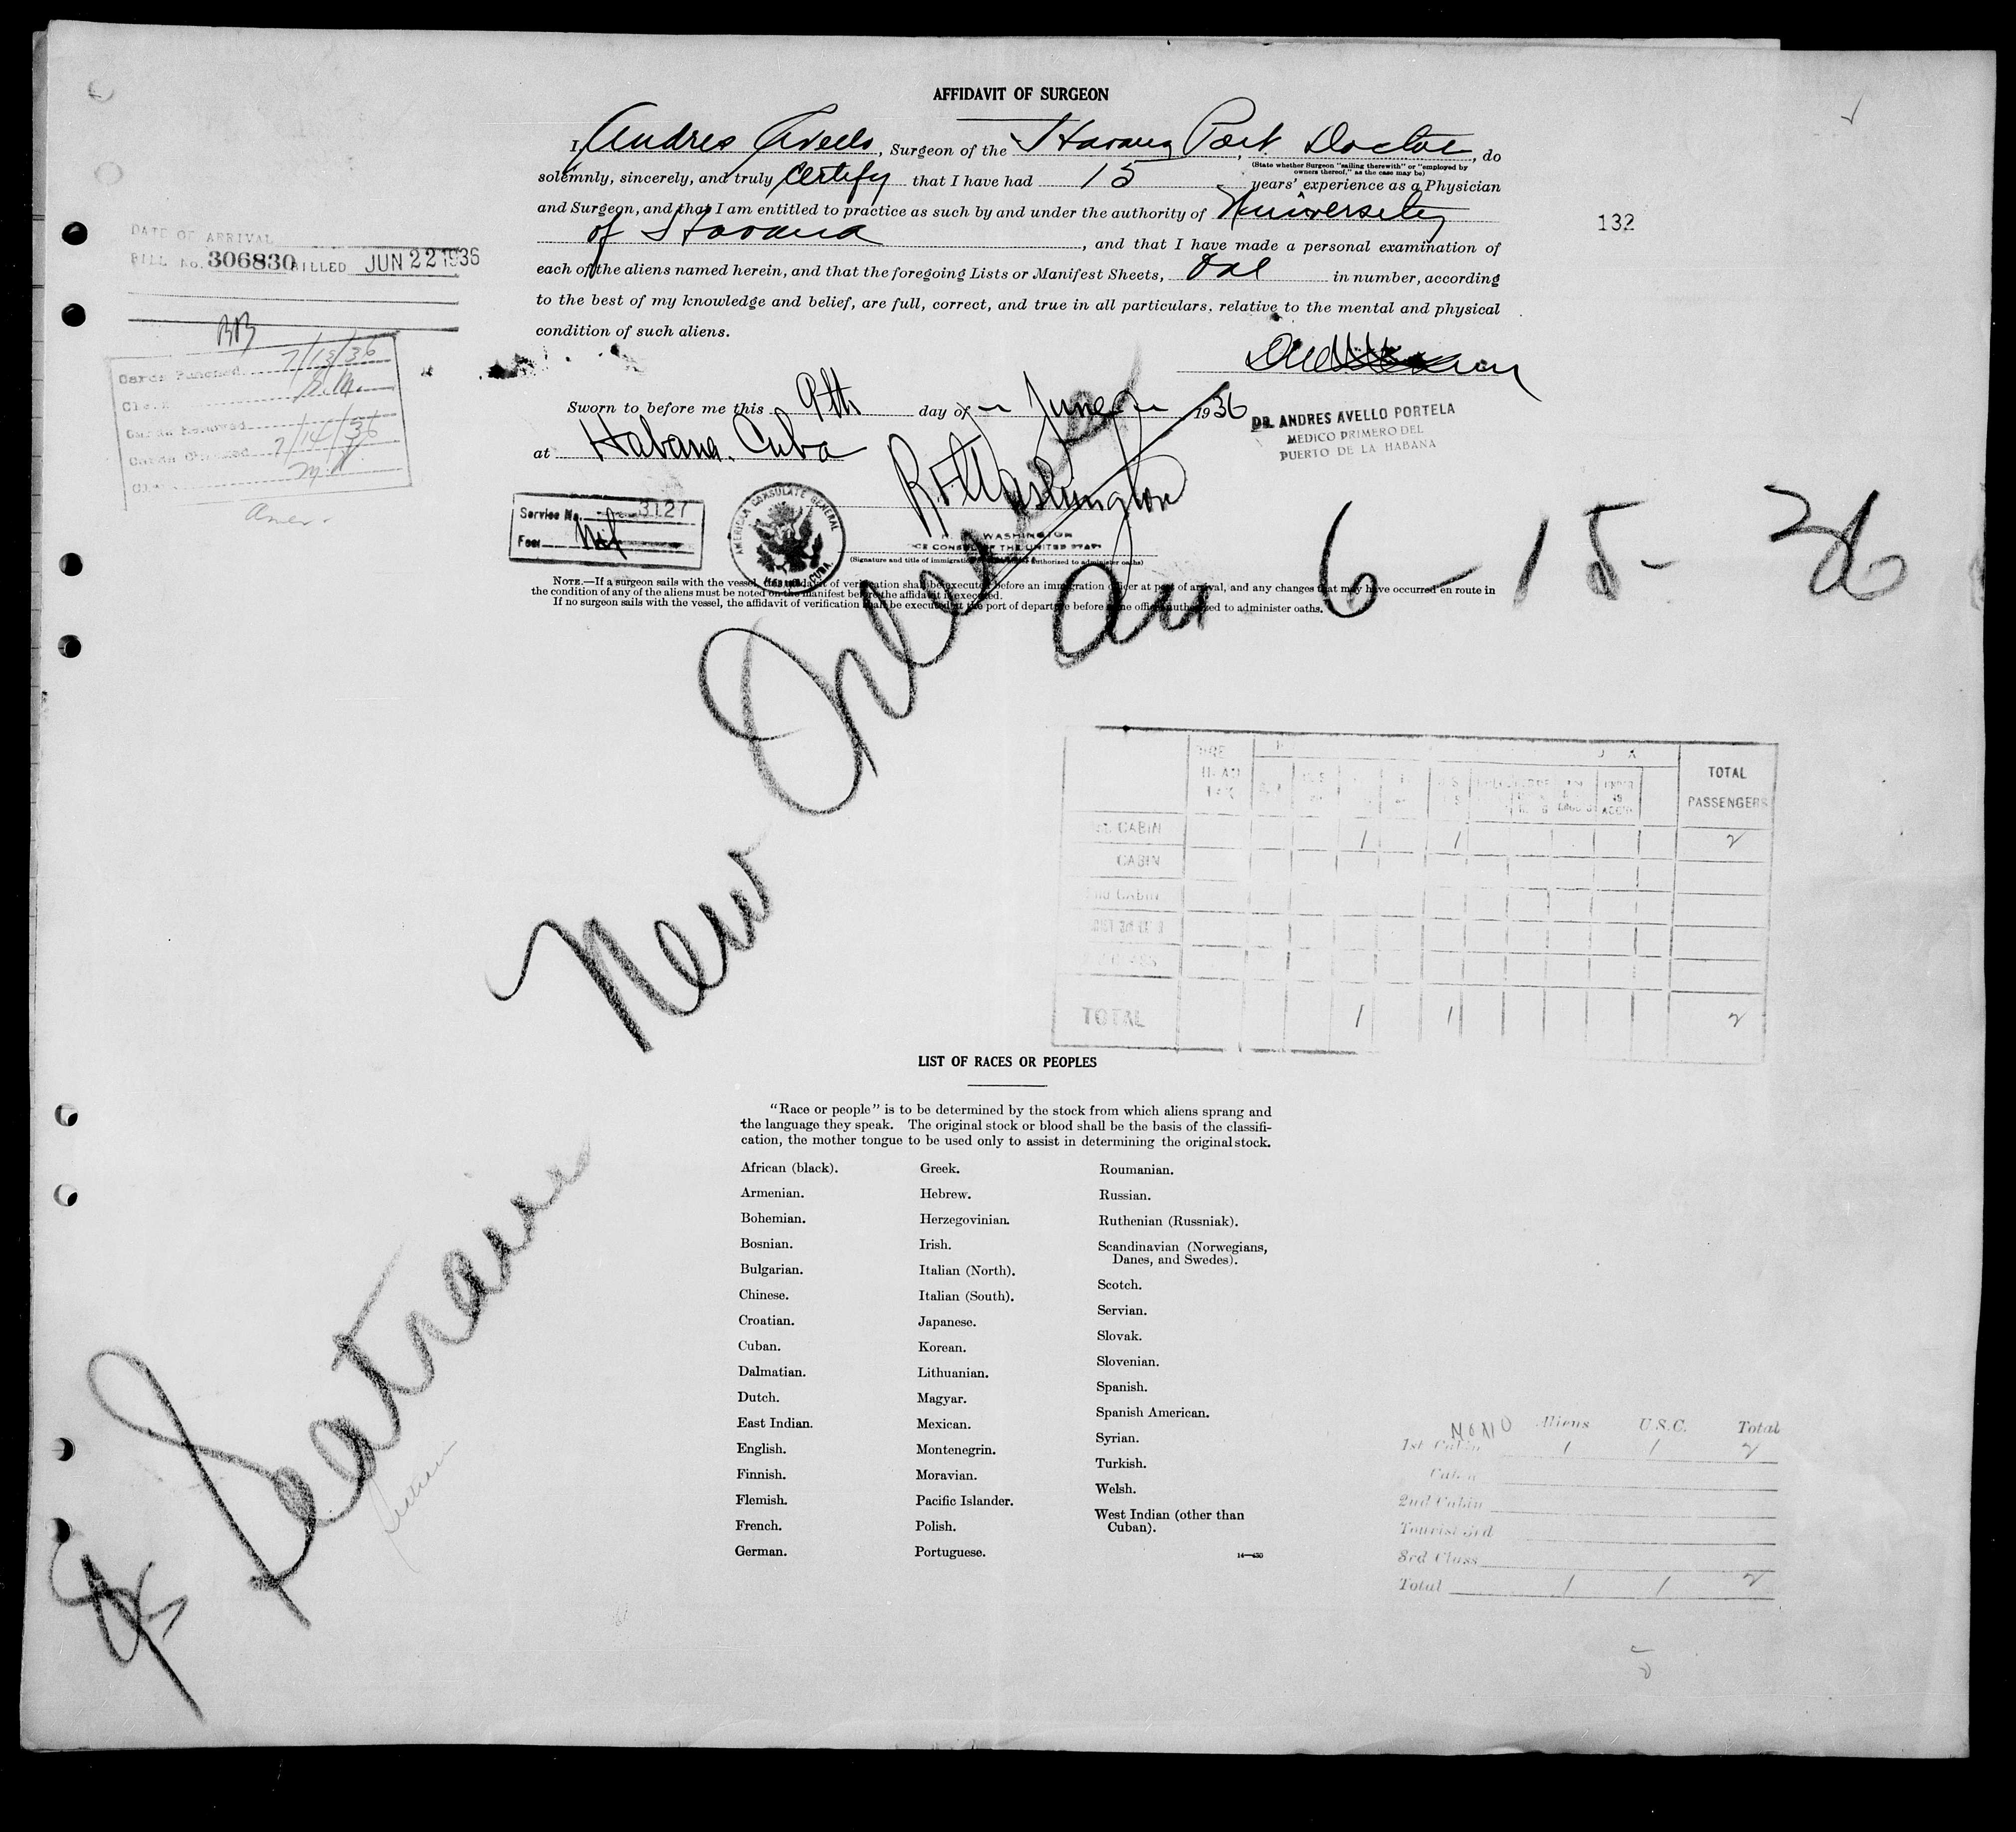 AFFIDAVIT OF SURGEON
I, Andres Avello, Surgeon of the Havana Port Doctor, do
(State whether Surgeon "sailing therewith" or "employed by owners thereof," as the case may be)
solemnly, sincerely, and truly Certify that I have had 15 years' experience as a Physician
and Surgeon, and that I am entitled to practice as such by and under the authority of University
of Havana, and that I have made a personal examination of
each of the aliens named herein, and that the foregoing Lists or Manifest Sheets, One in number, according
to the best of my knowledge and belief, are full, correct, and true in all particulars, relative to the mental and physical
condition of such aliens.
132
DATE OF ARRIVAL
BILL No. 306830 BILLED JUN 22 1936
Cards Punched 7/13/36
Clerk
7/14/36
Sworn to before me this 9th day of June 1936
at Habana, Cuba
DR. ANDRES AVELLO PORTELA
MEDICO PRIMERO DEL
PUERTO DE LA HABANA
R. F. Washington
WASHINGTON
VICE CONSUL OF THE UNITED STATES
Service No. 3127
Fee Nil
AMERICAN CONSULATE GENERAL
CUBA
(Signature and title of immigration authorized to administer oaths)
NOTE.—If a surgeon sails with the vessel, the affidavit of verification shall be executed before an immigration officer at port of arrival, and any changes that may have occurred en route in
the condition of any of the aliens must be noted on the manifest before the affidavit is executed.
If no surgeon sails with the vessel, the affidavit of verification shall be executed at the port of departure before some officer authorized to administer oaths.
arr 6-15-36
SS Seatrain New Orleans
TOTAL
PASSENGERS
1st CABIN 1 1 2
CABIN
2nd CABIN
TOTAL 1 1 2
LIST OF RACES OR PEOPLES
"Race or people" is to be determined by the stock from which aliens sprang and
the language they speak. The original stock or blood shall be the basis of the classifi-
cation, the mother tongue to be used only to assist in determining the original stock.
African (black).
Armenian.
Bohemian.
Bosnian.
Bulgarian.
Chinese.
Croatian.
Cuban.
Dalmatian.
Dutch.
East Indian.
English.
Finnish.
Flemish.
French.
German.
Greek.
Hebrew.
Herzegovinian.
Irish.
Italian (North).
Italian (South).
Japanese.
Korean.
Lithuanian.
Magyar.
Mexican.
Montenegrin.
Moravian.
Pacific Islander.
Polish.
Portuguese.
Roumanian.
Russian.
Ruthenian (Russniak).
Scandinavian (Norwegians,
Danes, and Swedes).
Scotch.
Servian.
Slovak.
Slovenian.
Spanish.
Spanish American.
Syrian.
Turkish.
Welsh.
West Indian (other than
Cuban).
14—430
Aliens U.S.C. Total
1st Cabin 1 1 2
Cabin
2nd Cabin
Tourist 3rd
3rd Class
Total 1 1 2